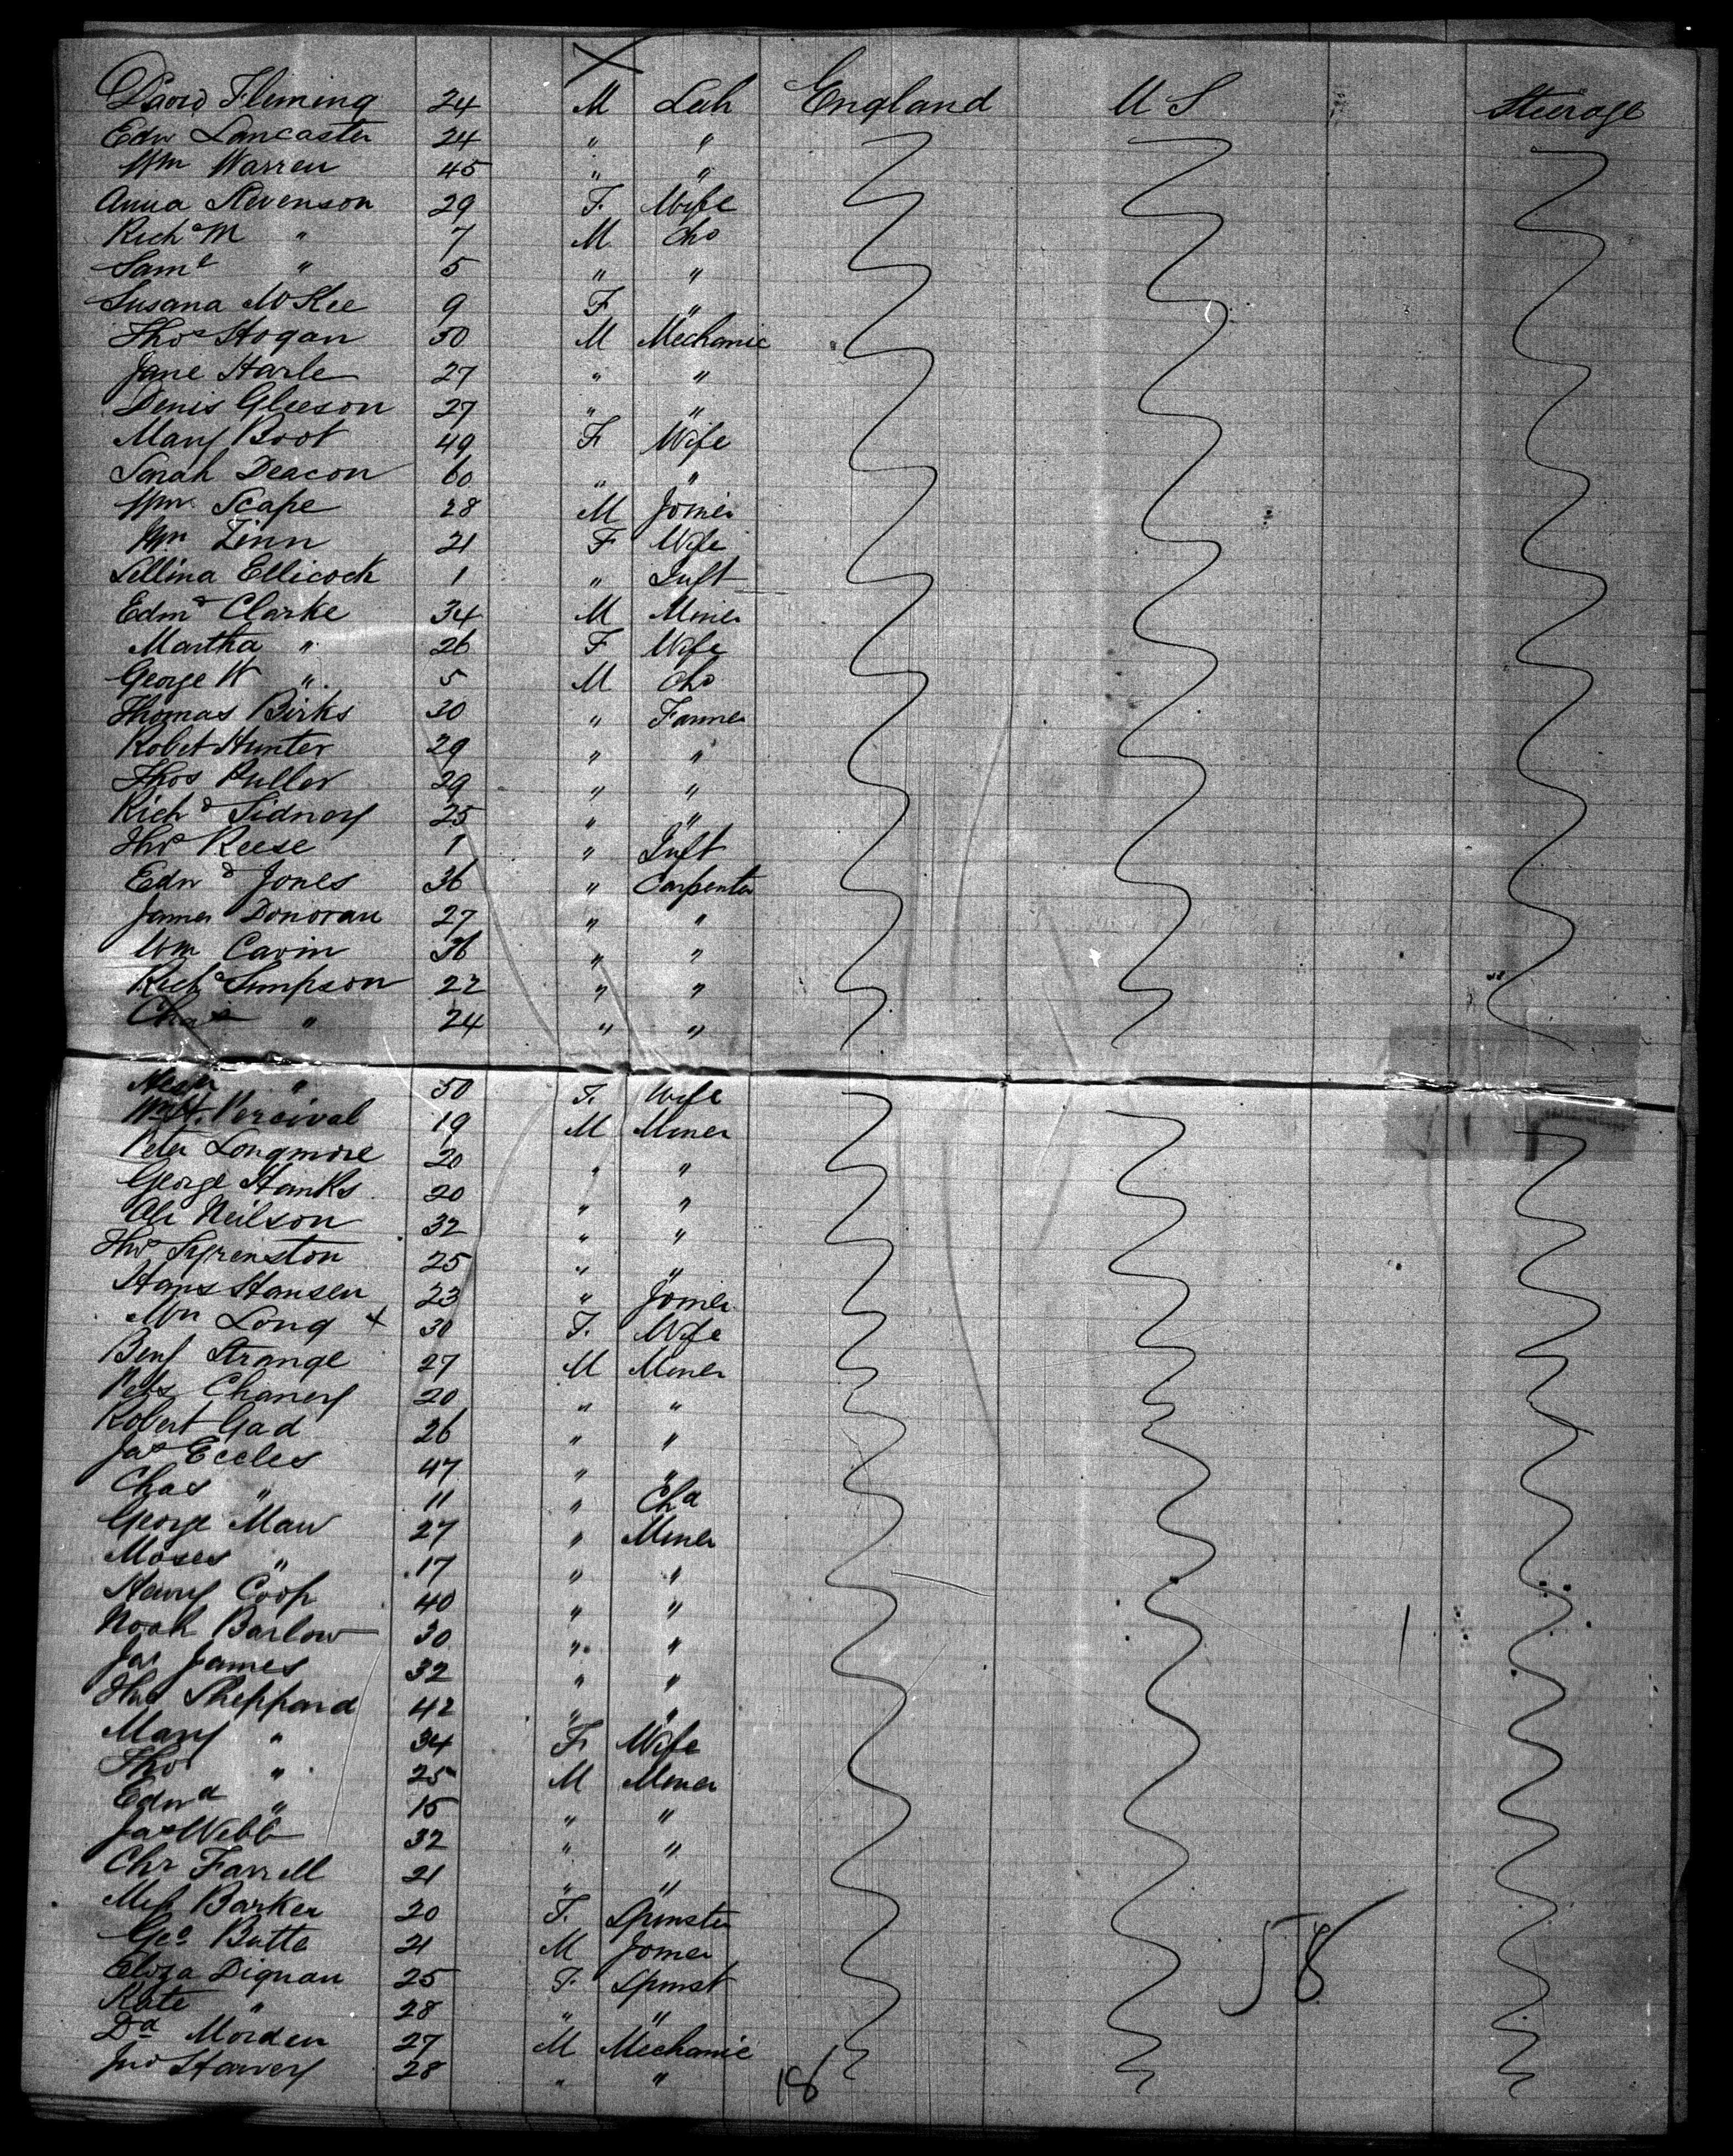 X
David Fleming 24 M Lab England U S Steerage
Edw Lancaster 24 " "
Wm Warren 45 " "
Anna Stevenson 29 F. Wife
Richd M " 7 M Chd
Saml " 5 " "
Susana McKee 9 F "
Thos Hogan 30 M Mechanic
Jane Harle 27 " "
Denis Gleeson 27 " "
Mary Boot 49 F Wife
Sarah Deacon 60 " "
Wm Scape 28 M Joiner
Mrs Zinn 21 F Wife
Sellina Ellicock 1 " Inft
Edmd Clarke 34 M Miner
Martha " 26 F Wife
George W " 5 M Chd
Thomas Birks 30 " Farmer
Robet Hunter 29 " "
Thos Puller 29 " "
Richd Sidney 25 " "
Thos Reese 1 " Inft
Edwd Jones 36 " Carpenter
James Donovan 27 " "
Wm Cavin 36 " "
Richd Simpson 22 " "
Chas " 24 " "
" 50 F. Wife
Percival 19 M Miner
Peter Longmore 20 " "
George Hanks 20 " "
Ole Neilson 32 " "
Thos 25 " "
Hans Hansen 23 " Joiner
Mrs Long x 30 F. Wife
Benj Strange 27 M Miner
Chaney 20 " "
Robert Gad 26 " "
Jas Eccles 47 " "
Chas " 11 " Chd
George Maw 27 " Miner
Moses " 17 " "
Henry Coop 40 " "
Noah Barlow 30 " "
Jas James 32 " "
Thos Sheppard 42 " "
Mary " 34 F Wife
Thos " 25 M Miner
Edwd " 15 " "
Jas Webb 32 " "
Chr Farrell 21 " "
Miss Barker 20 F. Spinster
Geo Butte 21 M Joiner
Eliza Dignan 25 F Spinst
Kate " 28 " "
Dd Morden 27 M Mechanic
Jno Harvey 28 " "
58
18